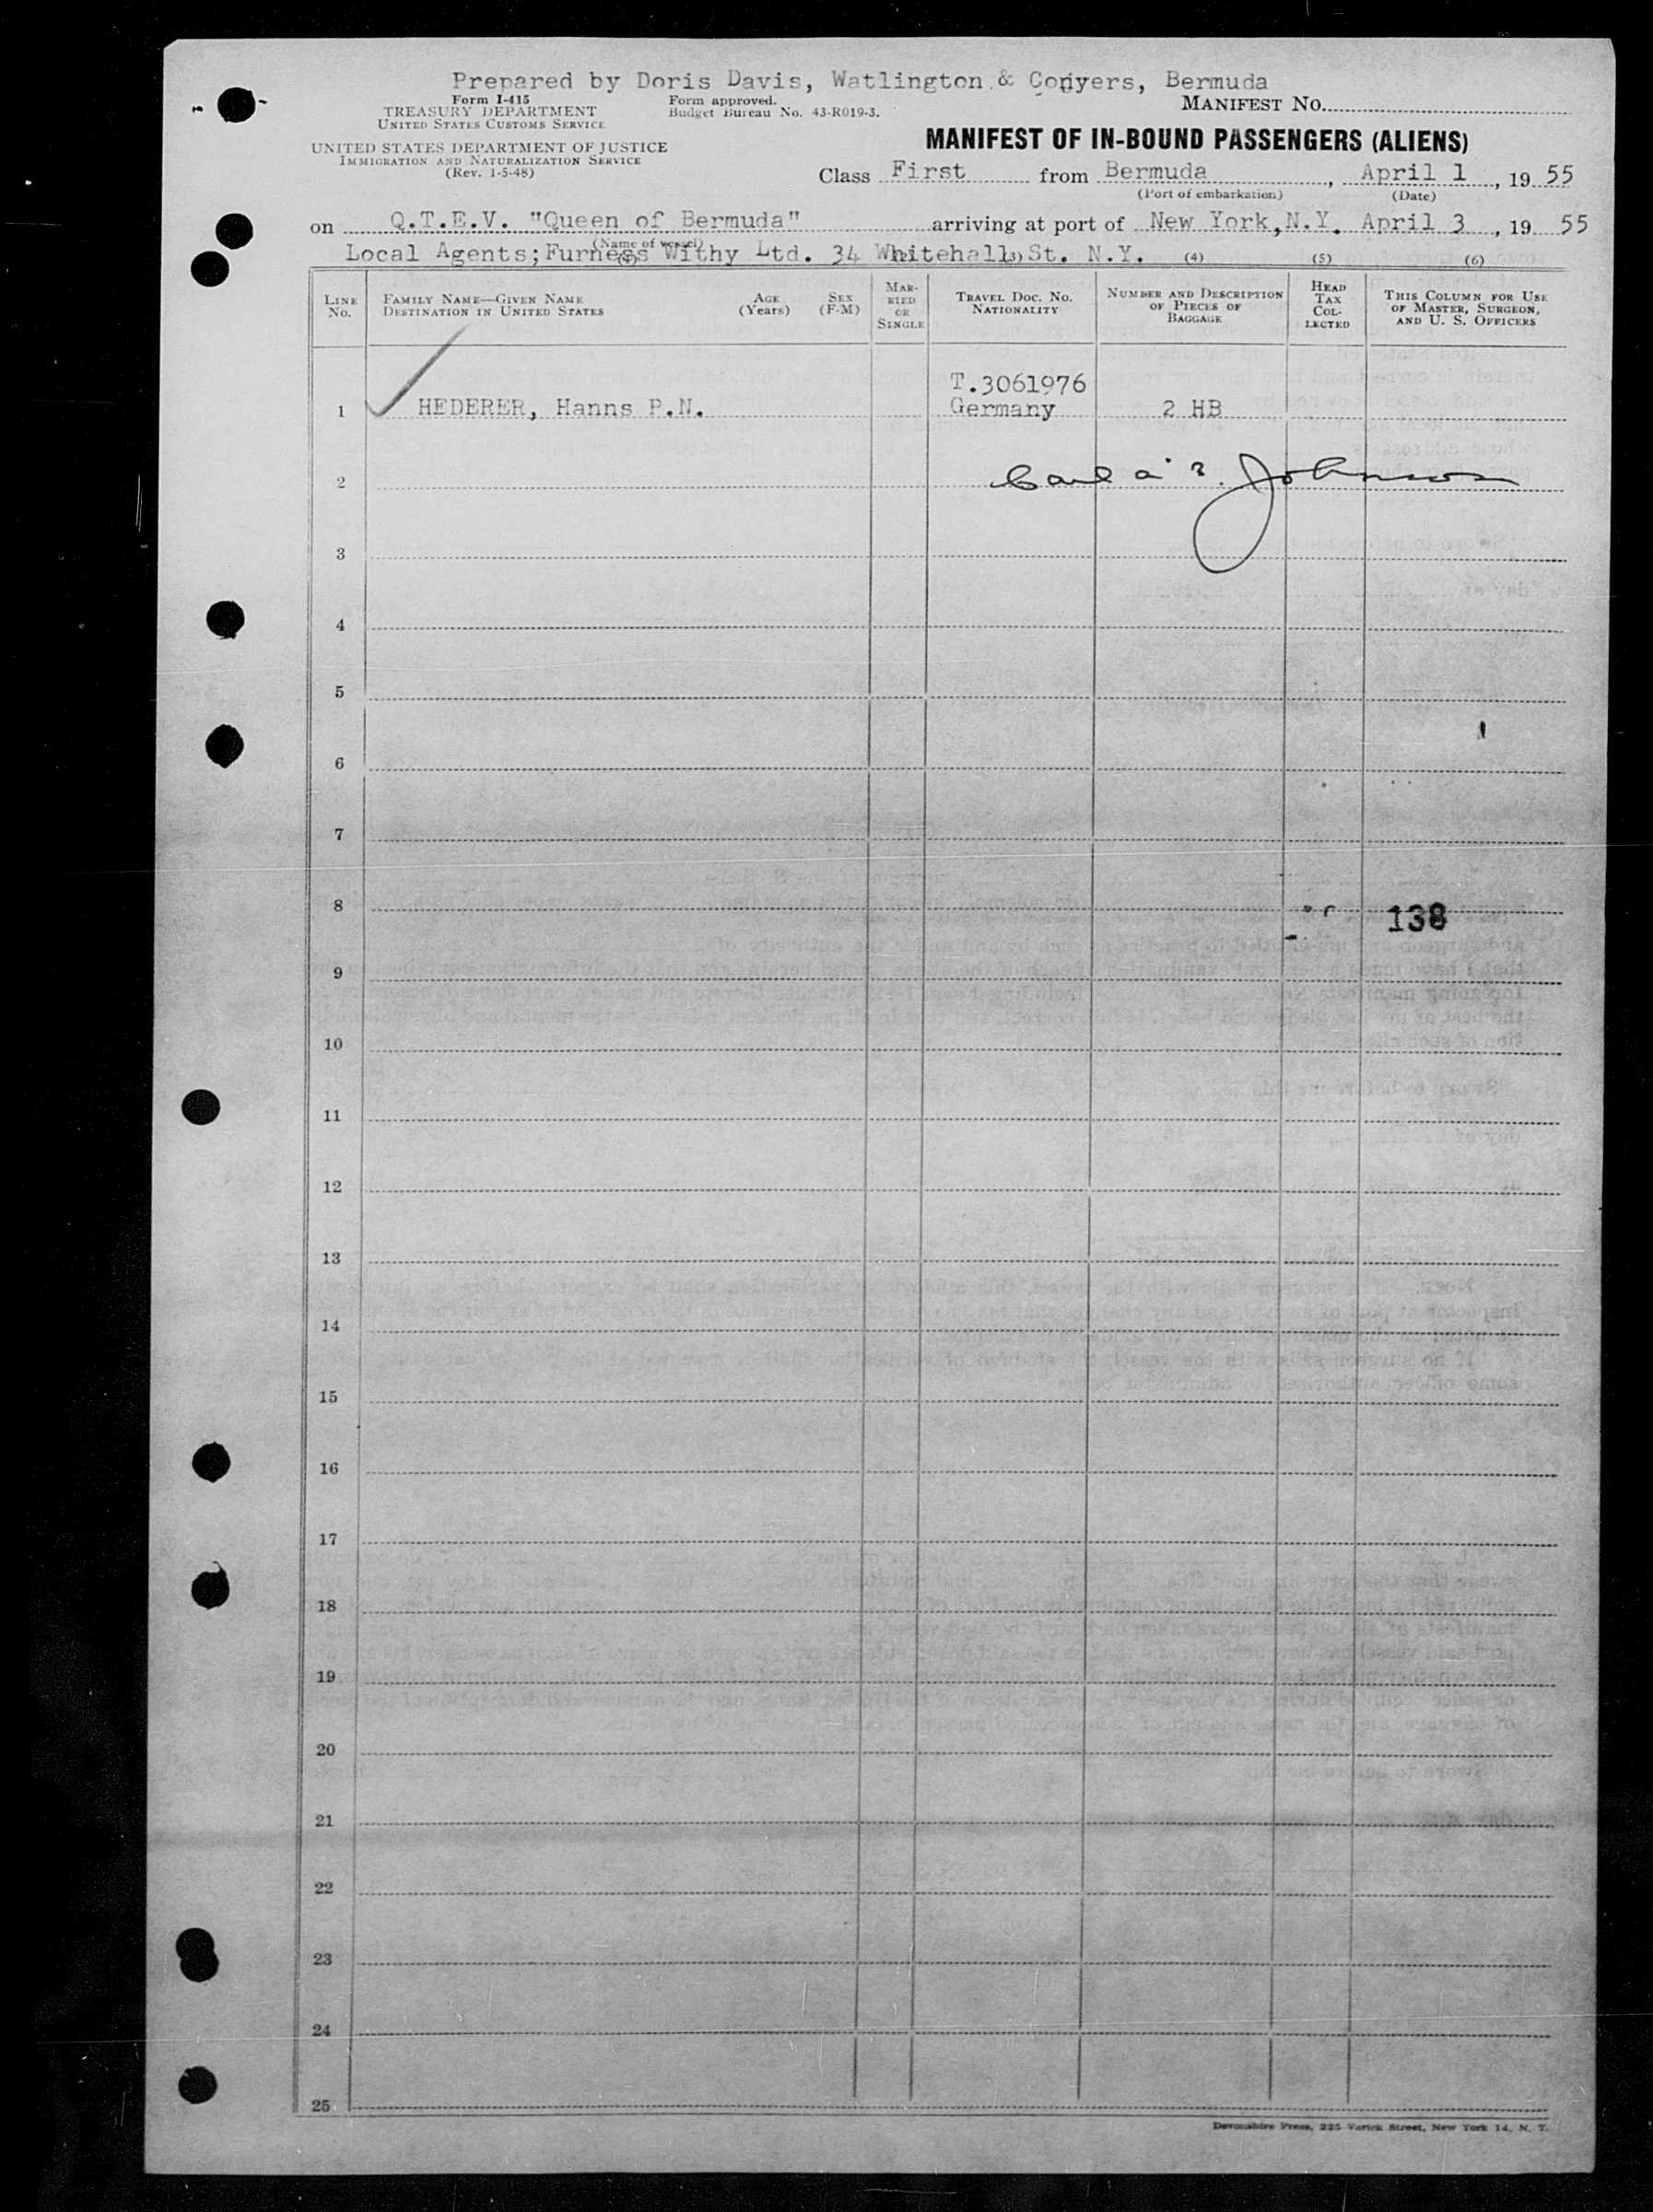 Prepared by Doris Davis, Watlington & Conyers, Bermuda
Form I-415
TREASURY DEPARTMENT
UNITED STATES CUSTOMS SERVICE
Form approved.
Budget Bureau No. 43-R019-3.
MANIFEST NO.
UNITED STATES DEPARTMENT OF JUSTICE
IMMIGRATION AND NATURALIZATION SERVICE
(Rev. 1-5-48)
MANIFEST OF IN-BOUND PASSENGERS (ALIENS)
Class First from Bermuda, April 1, 19 55
(Port of embarkation) (Date)
on Q.T.E.V. "Queen of Bermuda" arriving at port of New York, N.Y. April 3, 19 55
(Name of vessel)
Local Agents; Furness Withy Ltd. 34 Whitehall St. N.Y.
(3) (4) (5) (6)
LINE NO.
FAMILY NAME—GIVEN NAME
DESTINATION IN UNITED STATES
AGE (Years)
SEX (F-M)
MARRIED OR SINGLE
TRAVEL DOC. NO.
NATIONALITY
NUMBER AND DESCRIPTION OF PIECES OF BAGGAGE
HEAD TAX COLLECTED
THIS COLUMN FOR USE OF MASTER, SURGEON, AND U. S. OFFICERS
T.3061976
1 HEDERER, Hanns P.N. Germany 2 HB
2 Johnson
3
4
5
6
7
8 138
9
10
11
12
13
14
15
16
17
18
19
20
21
22
23
24
25
Devonshire Press, 225 Varick Street, New York 14, N. Y.